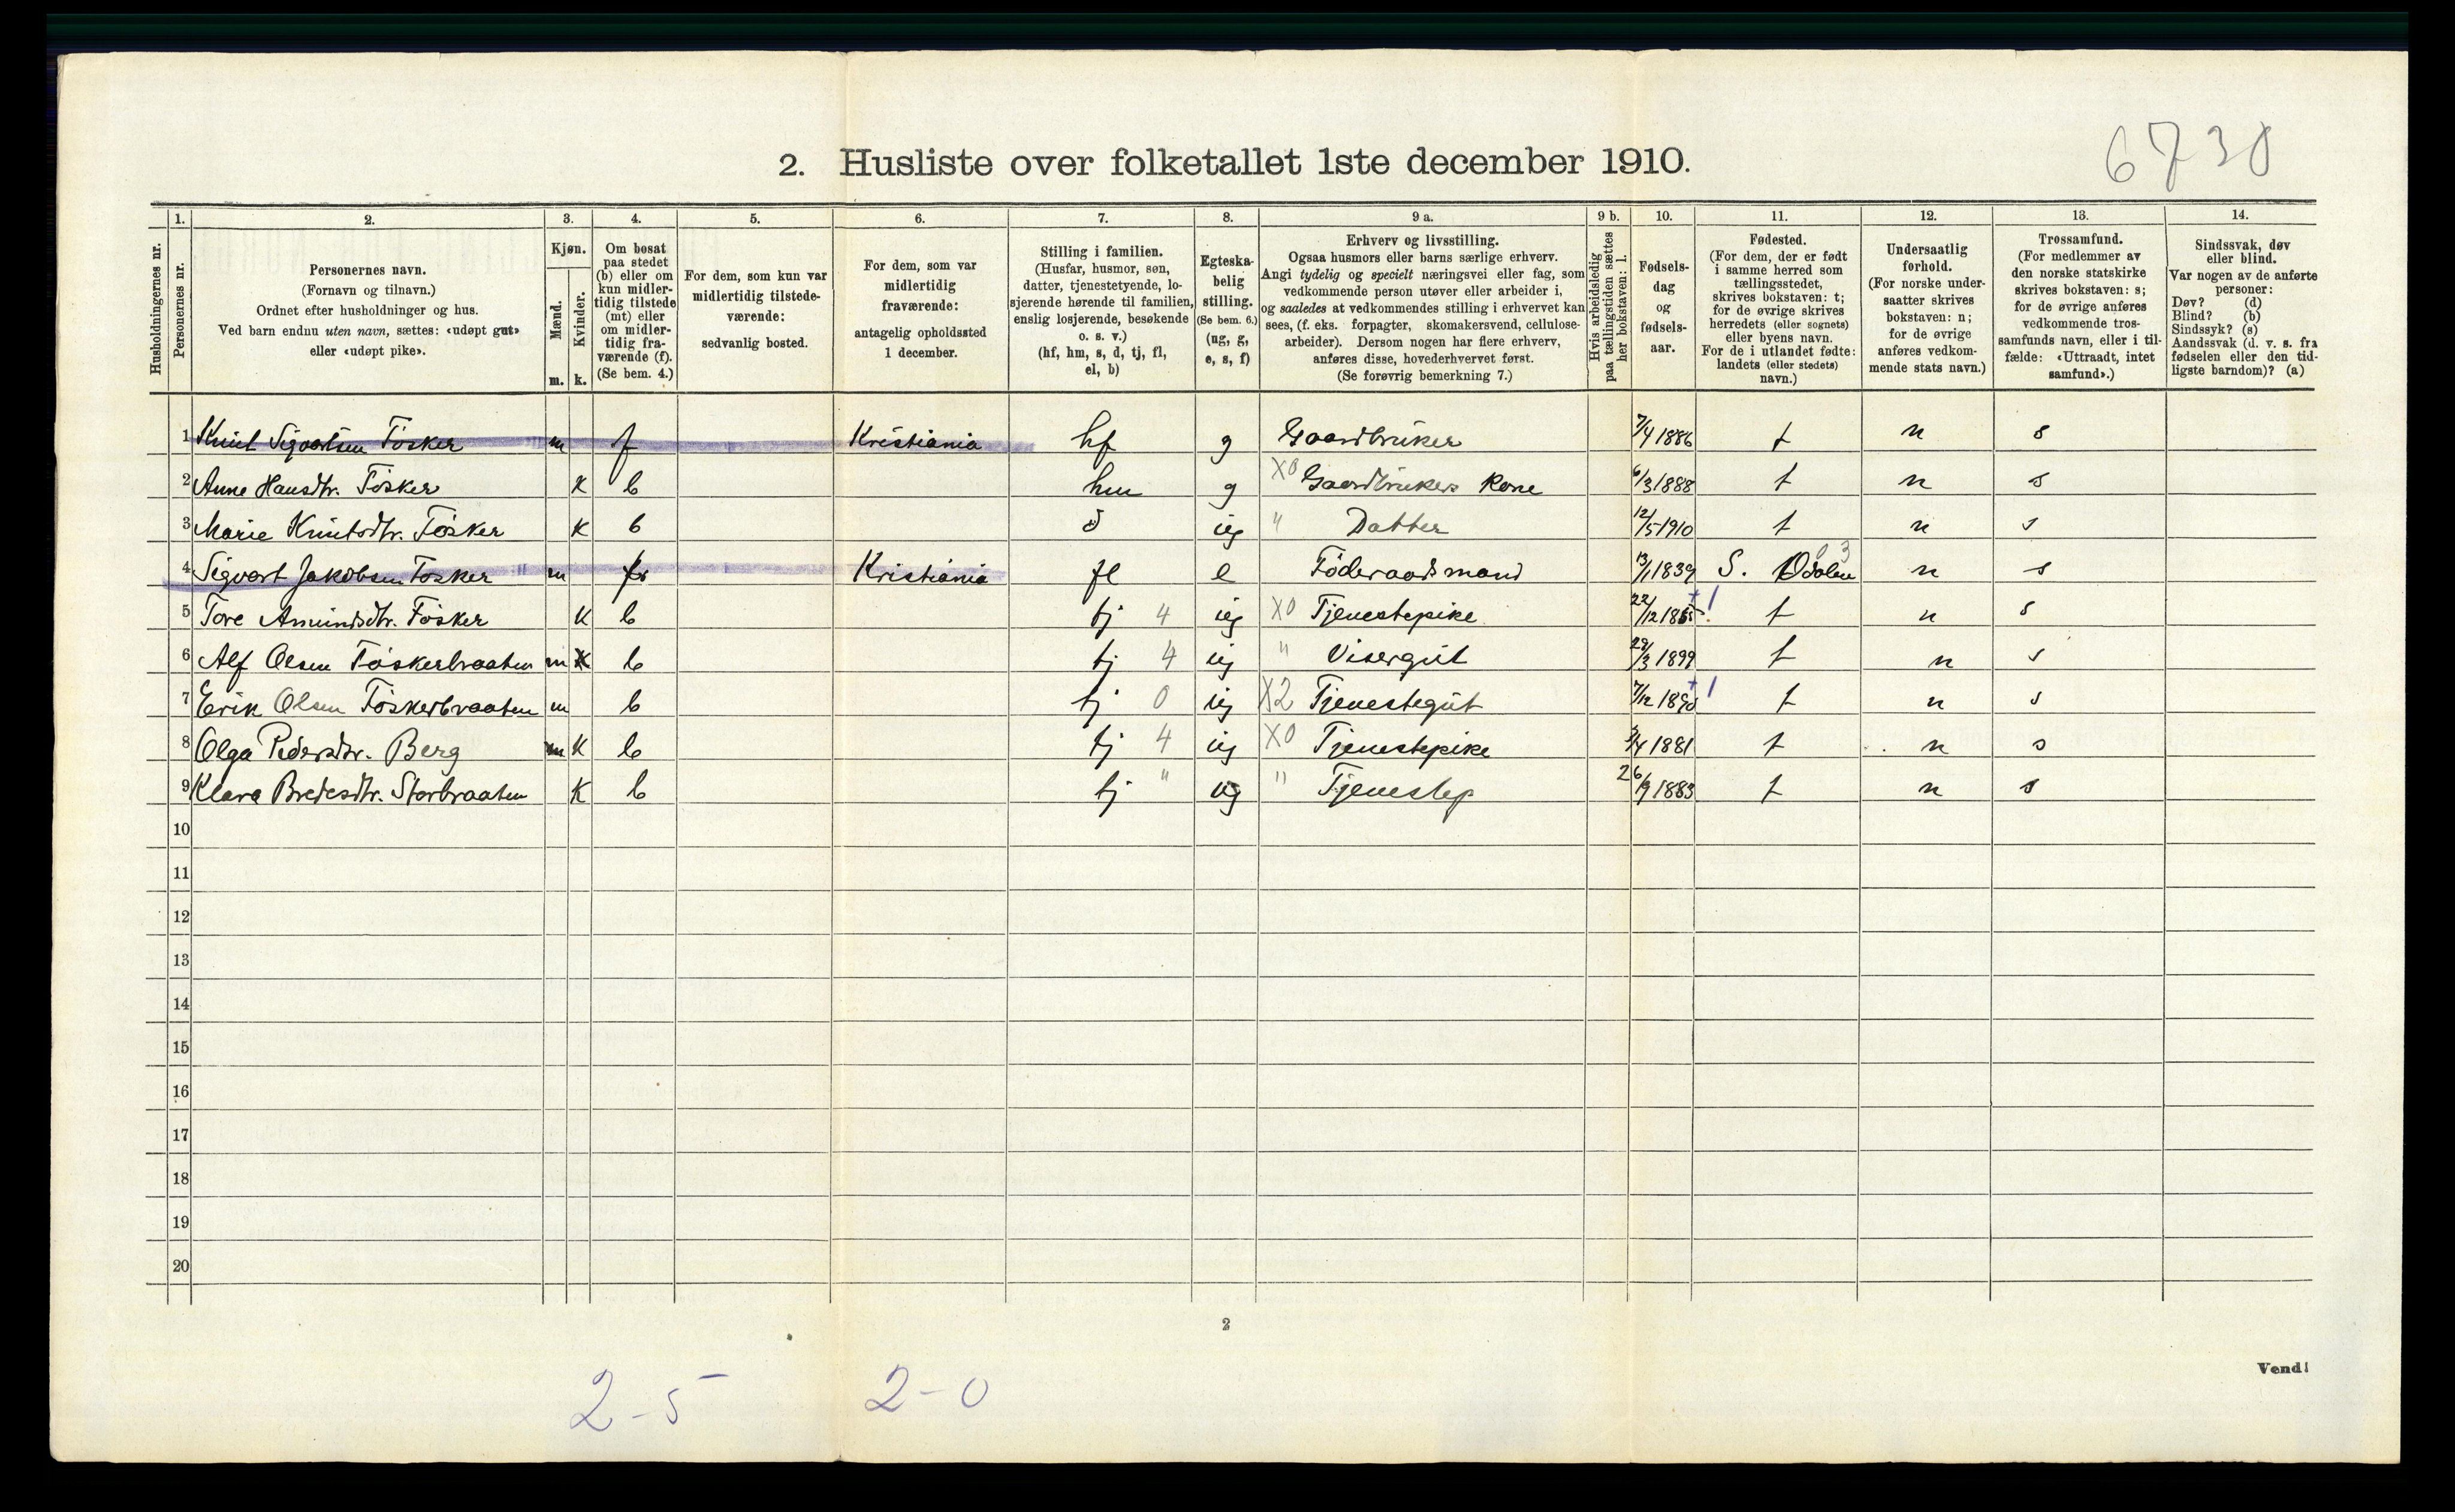 6730
2. Husliste over folketallet 1ste december 1910.
Husholdningernes nr.
1. Personernes nr.
2. Personernes navn. (Fornavn og tilnavn.) Ordnet efter husholdninger og hus. Ved barn endnu uten navn, sættes: «udøpt gut» eller «udøpt pike».
3. Kjøn. Mænd. m. Kvinder. k.
4. Om bosat paa stedet (b) eller om kun midlertidig tilstede (mt) eller om midlertidig fraværende (f). (Se bem. 4.)
5. For dem, som kun var midlertidig tilstedeværende: sedvanlig bosted.
6. For dem, som var midlertidig fraværende: antagelig opholdssted 1 december.
7. Stilling i familien. (Husfar, husmor, søn, datter, tjenestetyende, losjerende hørende til familien, enslig losjerende, besøkende o. s. v.) (hf, hm, s, d, tj, fl, el, b)
8. Egteskabelig stilling. (Se bem. 6.) (ug, g, e, s, f)
9 a. Erhverv og livsstilling. Ogsaa husmors eller barns særlige erhverv. Angi tydelig og specielt næringsvei eller fag, som vedkommende person utøver eller arbeider i, og saaledes at vedkommendes stilling i erhvervet kan sees, (f. eks. forpagter, skomakersvend, cellulosearbeider). Dersom nogen har flere erhverv, anføres disse, hovederhvervet først. (Se forøvrig bemerkning 7.)
9 b. Hvis arbeidsledig paa tællingstiden sættes her bokstaven: l.
10. Fødselsdag og fødselsaar.
11. Fødested. (For dem, der er født i samme herred som tællingsstedet, skrives bokstaven: t; for de øvrige skrives herredets (eller sognets) eller byens navn. For de i utlandet fødte: landets (eller stedets) navn.)
12. Undersaatlig forhold. (For norske undersaatter skrives bokstaven: n; for de øvrige anføres vedkommende stats navn.)
13. Trossamfund. (For medlemmer av den norske statskirke skrives bokstaven: s; for de øvrige anføres vedkommende trossamfunds navn, eller i tilfælde: «Uttraadt, intet samfund».)
14. Sindssvak, døv eller blind. Var nogen av de anførte personer: Døv? (d) Blind? (b) Sindssyk? (s) Aandssvak (d. v. s. fra fødselen eller den tidligste barndom)? (a)
1 Knut Sigvartsen Fösker m f Kristiania hf g Gaardbruker 7/4 1886 t n s
2 Anne Hansdtr. Fösker K b hm g X0 Gaardbrukers Kone 6/3 1888 t n s
3 Marie Knutsdtr. Fösker K b d ug " Datter 12/5 1910 t n s
4 Sigvart Jakobsen Fösker m f Kristiania fl e Föderaadsmand 13/1 1839 S. Odalen n s
5 Tore Amundsdtr. Fösker K b tj 4 ug X0 Tjenestepike 22/12 1865 t n s
6 Alf Olsen Föskerbraaten m b tj 4 ug " Visergut 29/3 1899 t n s
7 Erik Olsen Föskerbraaten m b tj 0 ug X2 Tjenestegut 7/12 1890 t n s
8 Olga Pedersdtr. Berg K b tj 4 ug X0 Tjenestepike 3/4 1881 t n s
9 Klara Bredesdtr. Storbraaten K b tj " ug " Tjenestep 26/9 1883 t n s
10
11
12
13
14
15
16
17
18
19
20
2
Vend!
2-5 2-0